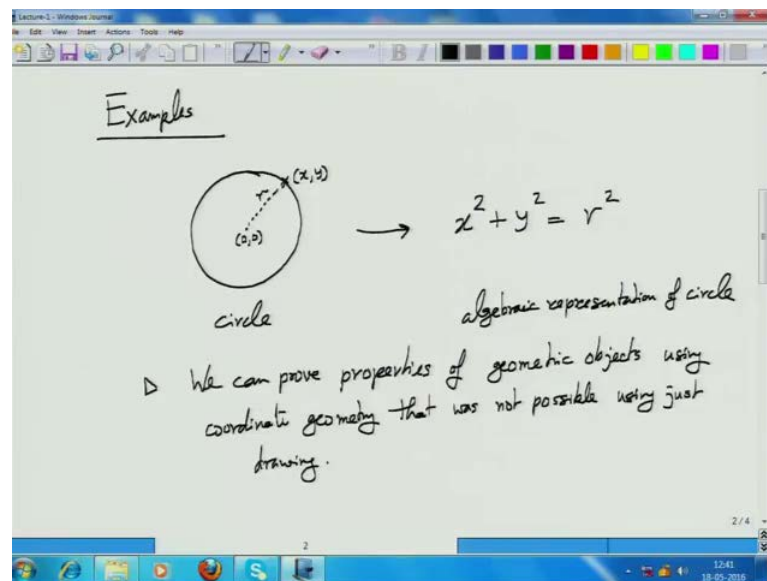 Lecture-1 - Windows Journal
File Edit View Insert Actions Tools Help
Examples
(x,y)
r
(0,0)
x² + y² = r²
circle
algebraic representation of circle
▷ We can prove properties of geometric objects using
coordinate geometry that was not possible using just
drawing.
2 / 4
2
12:41
18-05-2016